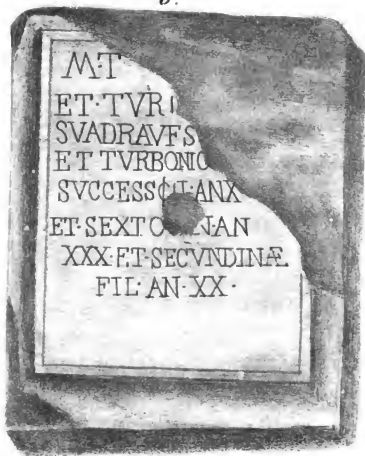 M·T
ET·TVRI
SVADRAVFS
ET TVRBONIO
ANX
ET·SEXTO AN
XXX·ET·SECVNDINÆ
FIL·AN·XX·